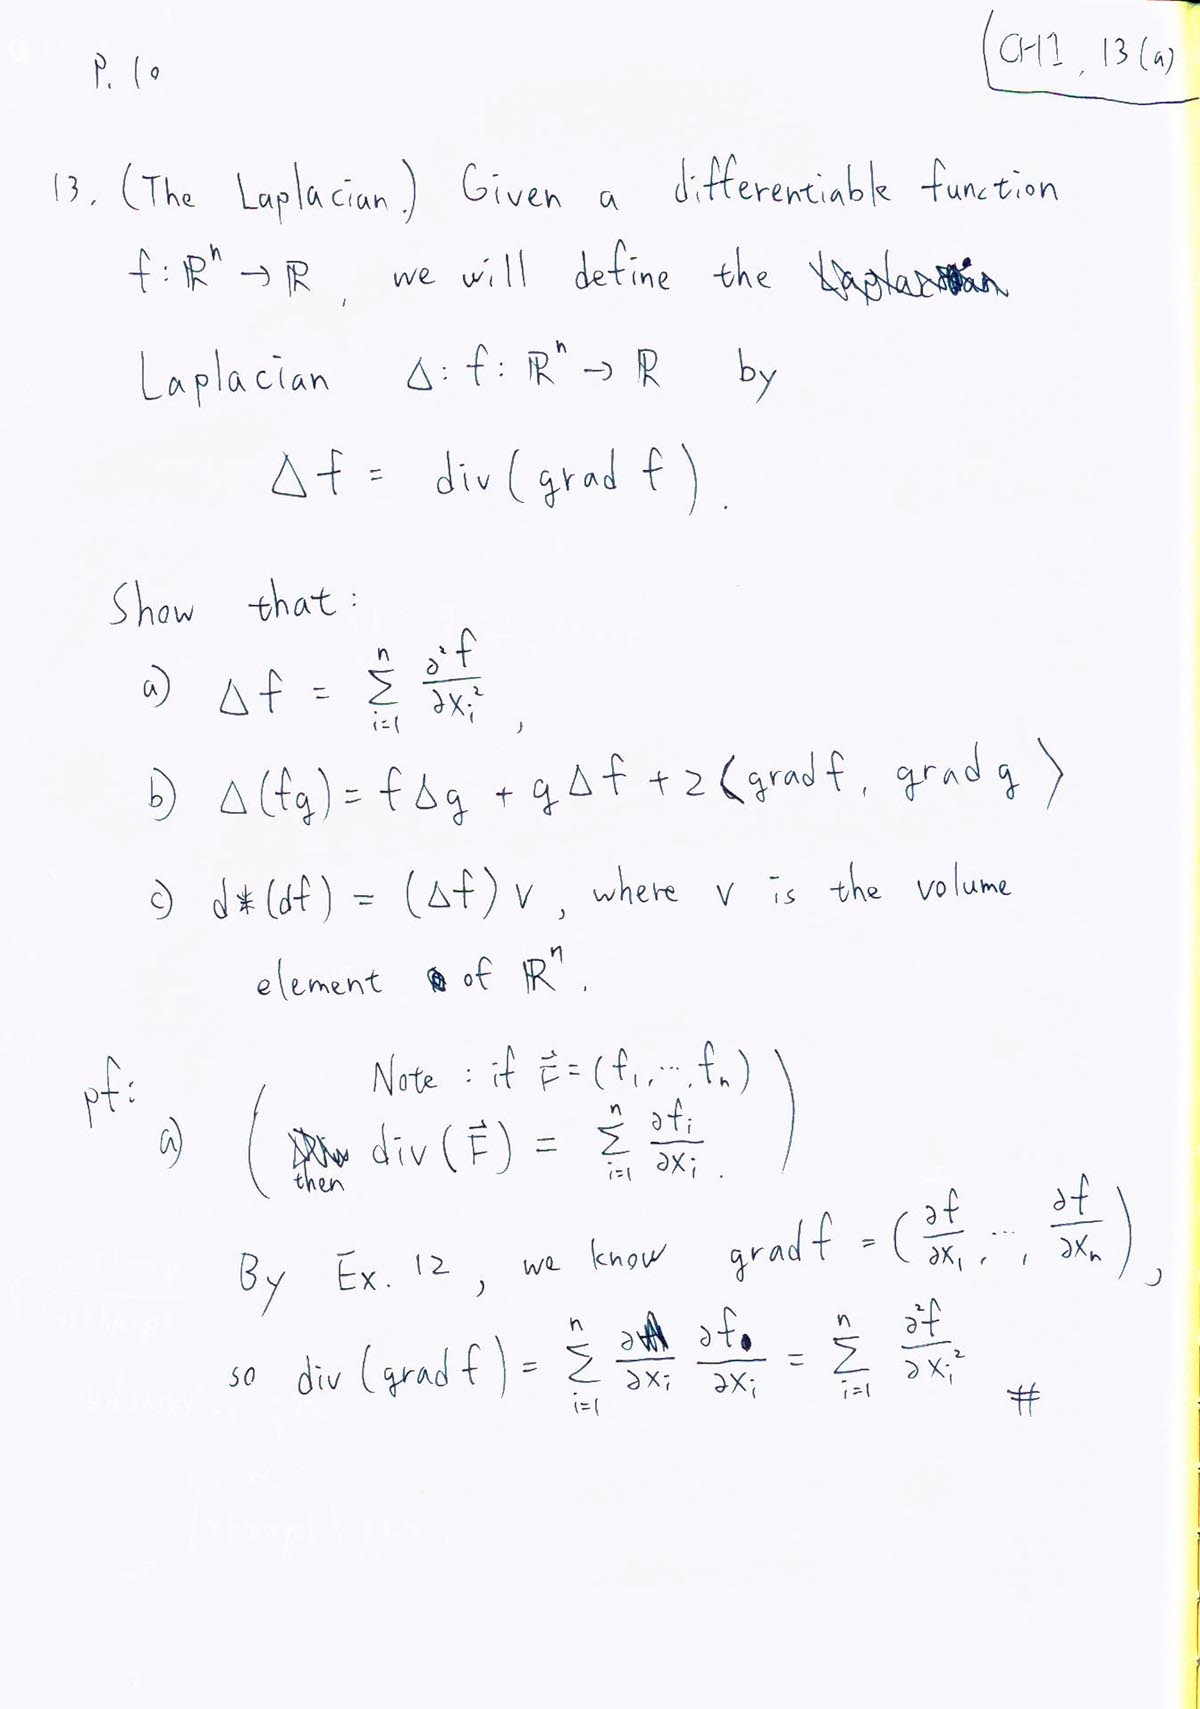 P. 10
CH1, 13(a)
13. (The Laplacian.) Given a differentiable function
f: ℝⁿ → ℝ, we will define the
Laplacian Δ: f: ℝⁿ → ℝ by
Δf = div(grad f).
Show that:
a) Δf = Σ_{i=1}^{n} ∂²f/∂x_i²,
b) Δ(fg) = fΔg + gΔf + 2⟨grad f, grad g⟩
c) d*(df) = (Δf)ν, where ν is the volume
element of ℝⁿ.
pf:
a) ( Note: if F⃗ = (f₁, ..., fₙ)
then div(F⃗) = Σ_{i=1}^{n} ∂f_i/∂x_i. )
By Ex. 12, we know grad f = (∂f/∂x₁, ..., ∂f/∂xₙ),
so div(grad f) = Σ_{i=1}^{n} ∂/∂x_i ∂f/∂x_i = Σ_{i=1}^{n} ∂²f/∂x_i² #